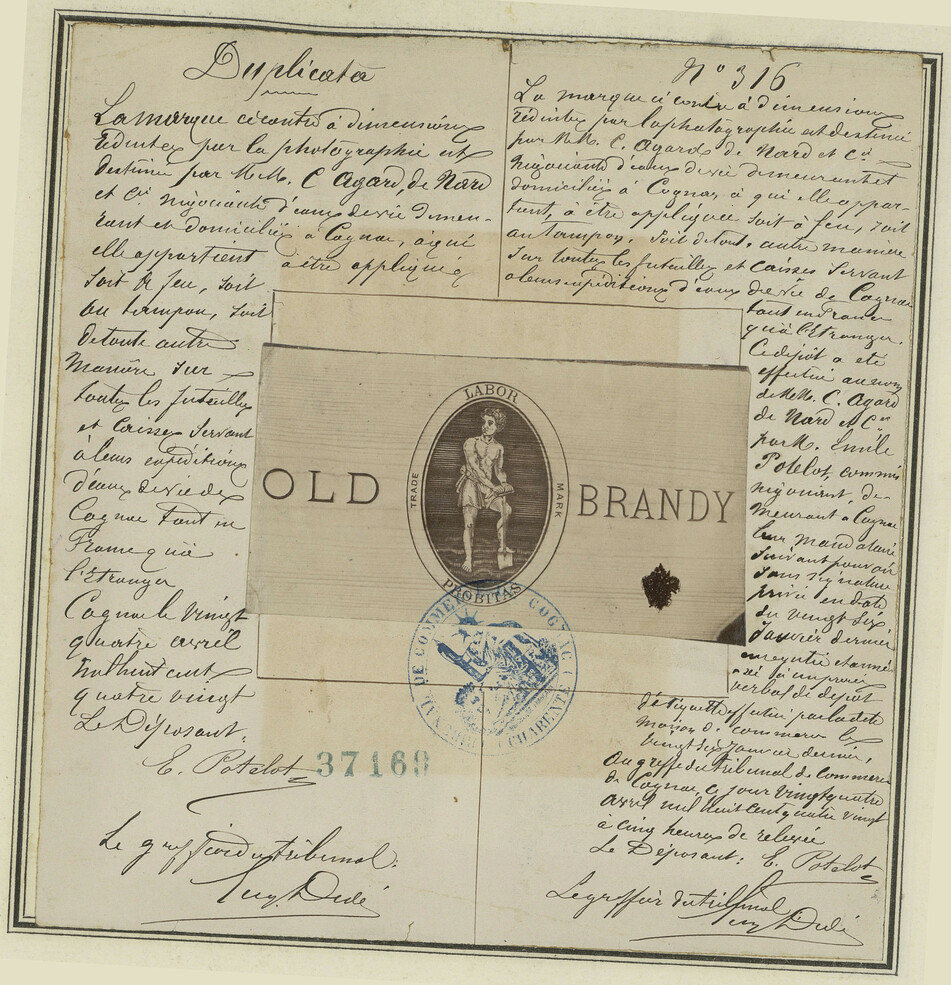 Duplicata
La marque ci contre à dimensions
réduites par la photographie est
destinée par M.M. C Agard, de Nard
et Cie négociants d'eaux de vie demeu-
rant et domiciliés à Cognac, à qui
elle appartient à être appliquée
soit à feu, soit
au tampon, soit
de toute autre
manière sur
toutes les futailles
et caisses servant
à leurs expéditions
d'eaux de vie de
Cognac tant en
France qu'à
l'Etranger
Cognac le vingt
quatre avril
mil huit cent
quatre vingt
Le Déposant:
E. Potelot
Le greffier du tribunal:
Didé
No 316
La marque ci contre à dimensions
réduites par la photographie est destinée
par M.M. C. Agard de Nard et Cie
négociants d'eaux de vie demeurant et
domiciliés à Cognac, à qui elle appar-
tient, à être appliquée soit à feu, soit
au tampon, soit de tout. autre manière
sur toutes les futailles et caisses servant
à leurs expéditions d'eaux de vie de Cognac
tant en France
qu'à l'Etranger.
Ce dépôt a été
effectué au nom
de M.M. C. Agard
de Nard et Cie
par M. Emile
Potelot, commis
négociant, de-
meurant à Cognac
leur mandataire
suivant pouvoir
sous signature
privée en date
du vingt six
Janvier dernier
enregistré et annexé
à un procès
verbal de dépôt
d'étiquette effectué par la dite
maison de commerce le
vingt six Janvier dernier,
Au greffe du tribunal de commerce
de Cognac, ce jour vingt quatre
avril mil huit cent quatre vingt
à cinq heures de relevée
Le Déposant: E. Potelot
Le greffier du tribunal
Didé
LABOR
OLD
TRADE
MARK
BRANDY
PROBITAS
DE COMMERCE COGNAC
(CHARENTE)
37169